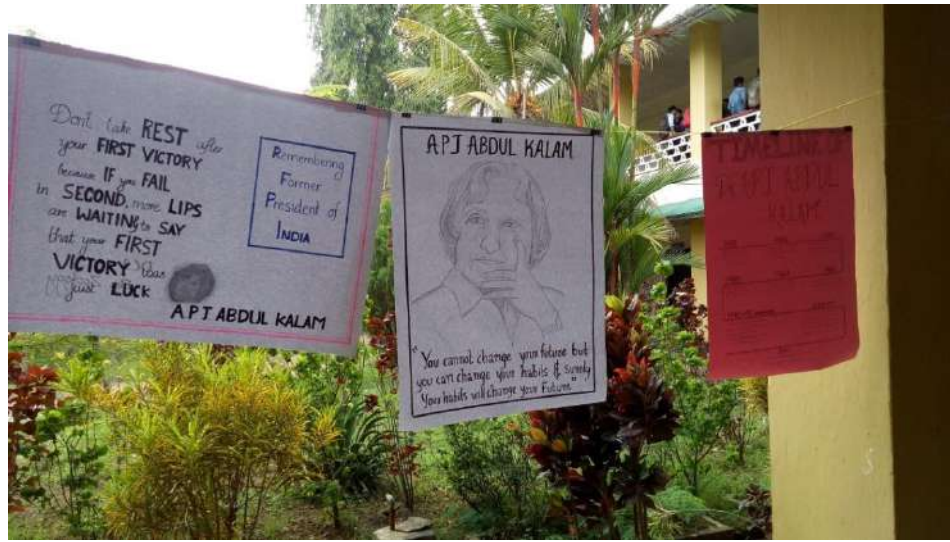 Don't take REST after
your FIRST VICTORY
because IF you FAIL
in SECOND, more LIPS
are WAITING to SAY
that your FIRST
VICTORY was
just LUCK
APJ ABDUL KALAM
Remembering
Former
President of
INDIA
APJ ABDUL KALAM
"You cannot change your future but
you can change your habits & surely
Your habits will change your Future"
TIMELINE OF
DR APJ ABDUL
KALAM